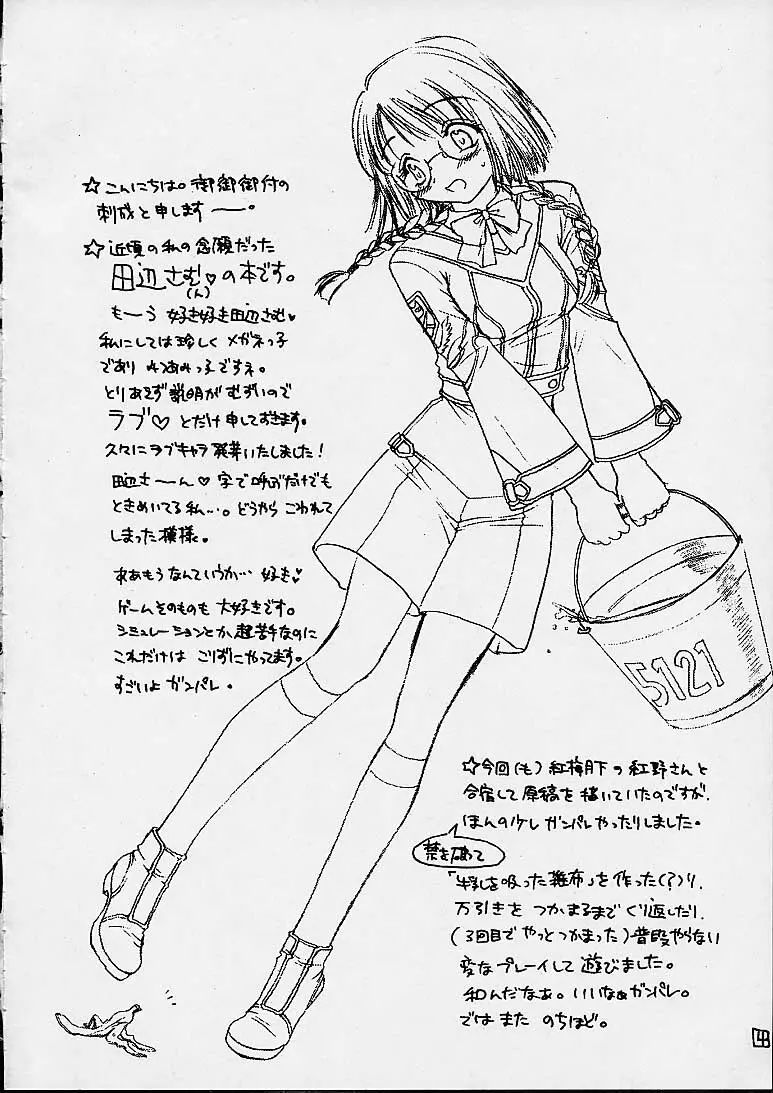 ☆こんにちは。御御御付の
刺成と申しますーー。
☆近頃の私の念願だった
田辺さむ♡の本です。
(ん)
もーう 好き好き田辺さむ♥
私にしては珍しくメガネっ子
であり みつあみっ子ですネ。
とりあえず説明がむずいので
ラブ♡とだけ申しておきます。
久々にラブキャラ発芽いたしました!
田辺さーーん♡字で呼ぶだけでも
ときめいてる私…。どうやら こわれて
しまった模様。
ああもうなんていうか… 好き♥
ゲームそのものも 大好きです。
シミュレーションとか超苦手なのに
これだけは こりずにやってます。
すごいよ ガンパレ。
5121
☆今回(も)紅梅月下の紅野さんと
合宿して原稿を描いていたのですが、
ほんの少し ガンパレやったりしました。
禁を破って
「牛乳を吸った雑布」を作った(?)り、
万引きを つかまるまで くり返したり、
(3回目で やっとつかまった)普段やらない
変なプレイして 遊びました。
和んだなぁ。いいなぁガンパレ。
では また のちほど。
4